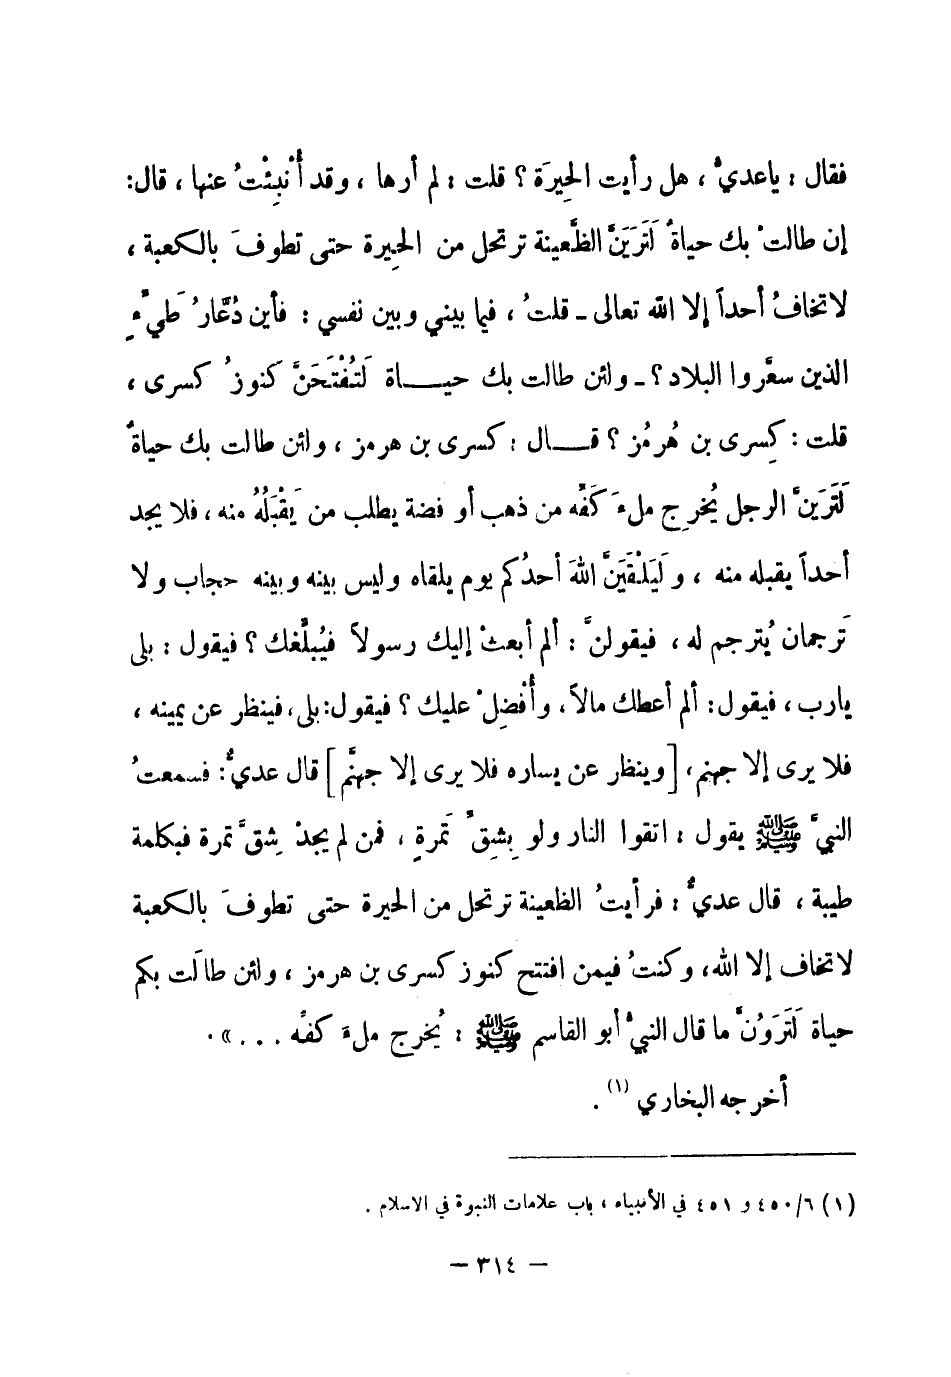 فقال : ياعديُّ ، هل رأيت الحِيرَة ؟ قلت : لم أرها ، وقد أُنْبِئْتُ عنها ، قال:
إن طالتْ بك حياةٌ لَتَرَيَنَّ الظَّعينة ترتحل من الحِيرة حتى تطوفَ بالكعبة ،
لاتخافُ أحداً إلا الله تعالى ـ قلتُ ، فيما بيني وبين نفسي : فأين دُعَّارُ طَيِّءٍ
الذين سعَّروا البلاد ؟ ـ ولئن طالت بك حيـــاة لَتُفْتَحَنَّ كنوزُ كسرى ،
قلت : كِسرى بن هُرمُز ؟ قـــال : كسرى بن هرمز ، ولئن طالت بك حياةٌ
لَتَرَيَنَّ الرجل يُخرِج ملءَ كَفِّه من ذهب أو فضة يطلب من يَقْبَلُهُ منه ، فلا يجد
أحداً يقبله منه ، ولَيَلْقَيَنَّ اللهَ أحدُكم يوم يلقاه وليس بينه وبينه حجاب ولا
تَرجمان يُترجم له ، فيقولنَّ : ألم أبعثْ إليك رسولاً فيُبلِّغك ؟ فيقول : بلى
يارب ، فيقول : ألم أعطك مالاً ، وأُفْضِلْ عليك ؟ فيقول: بلى ، فينظر عن يمينه ،
فلا يرى إلا جهنم ، [وينظر عن يساره فلا يرى إلا جهنَّم] قال عديٌّ: فسمعتُ
النبيَّ ﷺ يقول : اتقوا النار ولو بِشِقِّ تَمرةٍ ، فمن لم يجدْ شِقَّ تمرة فبكلمة
طيبة ، قال عديٌّ : فرأيتُ الظعينة ترتحل من الحيرة حتى تطوفَ بالكعبة
لاتخاف إلا الله، وكنتُ فيمن افتتح كنوز كسرى بن هرمز ، ولئن طالَت بكم
حياة لَتَرَوُنَّ ما قال النبيُّ أبو القاسم ﷺ : يُخرج ملءَ كفِّه . . . » .
أخرجه البخاري (١) .
(١) ٤٥٠/٦ و ٤٥١ في الأنبياء ، باب علامات النبوة في الاسلام .
— ٣١٤ —